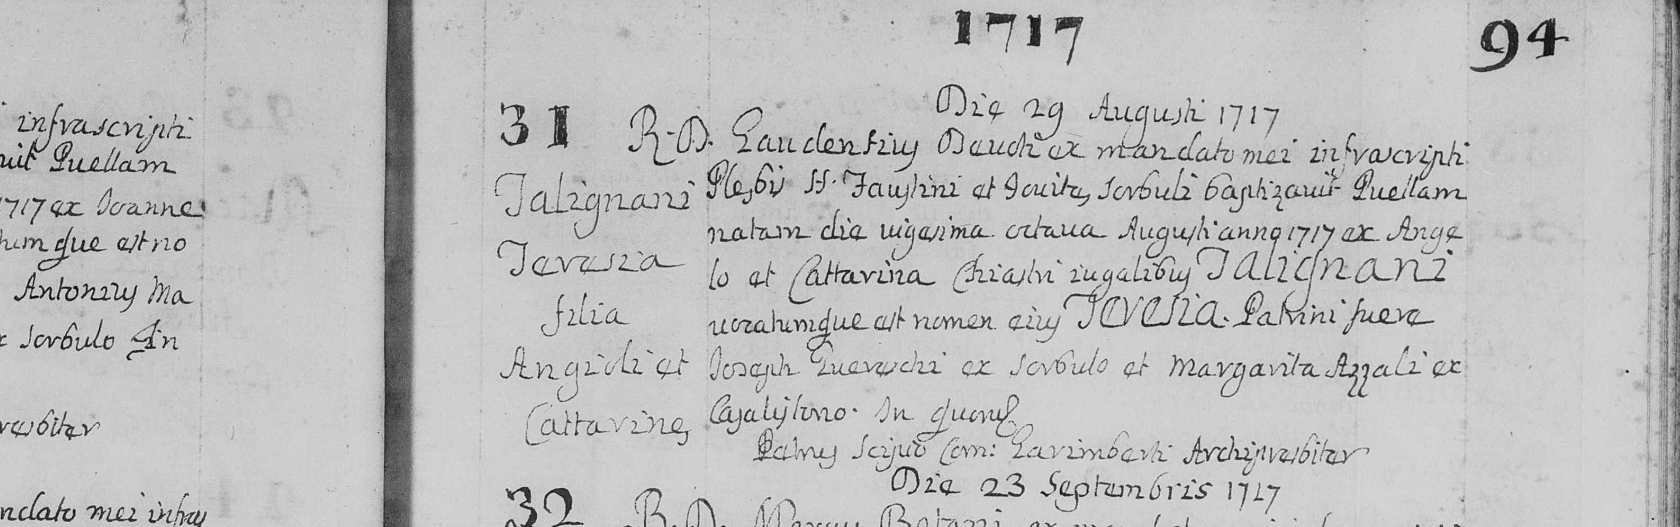 infrascripti
uit Puellam
1717 ex Ioanne
tumque est no
Antonius Ma
x Sorbulo In
resbiter
ndato mei infras
1717
94
Die 29 Augusti 1717
31
Talignani
Teresia
filia
Angioli et
Cattarine
R. D. Gaudentius ex mandato mei infrascripti
Plebis SS. Faustini et Iovite Sorbuli baptizavit Puellam
natam die uigesima octaua Augusti anno 1717 ex Ange
lo et Cattarina Chiastri iugalibus Talignani
uocatumque est nomen eius Teresia. Patrini fuere
Ioseph Guereschi ex Sorbulo et Margarita Azzali ex
Casalistono. In quorum
Petrus Scipio Com: Garimberti Archipresbiter
Die 23 Septembris 1717
32
R. D.